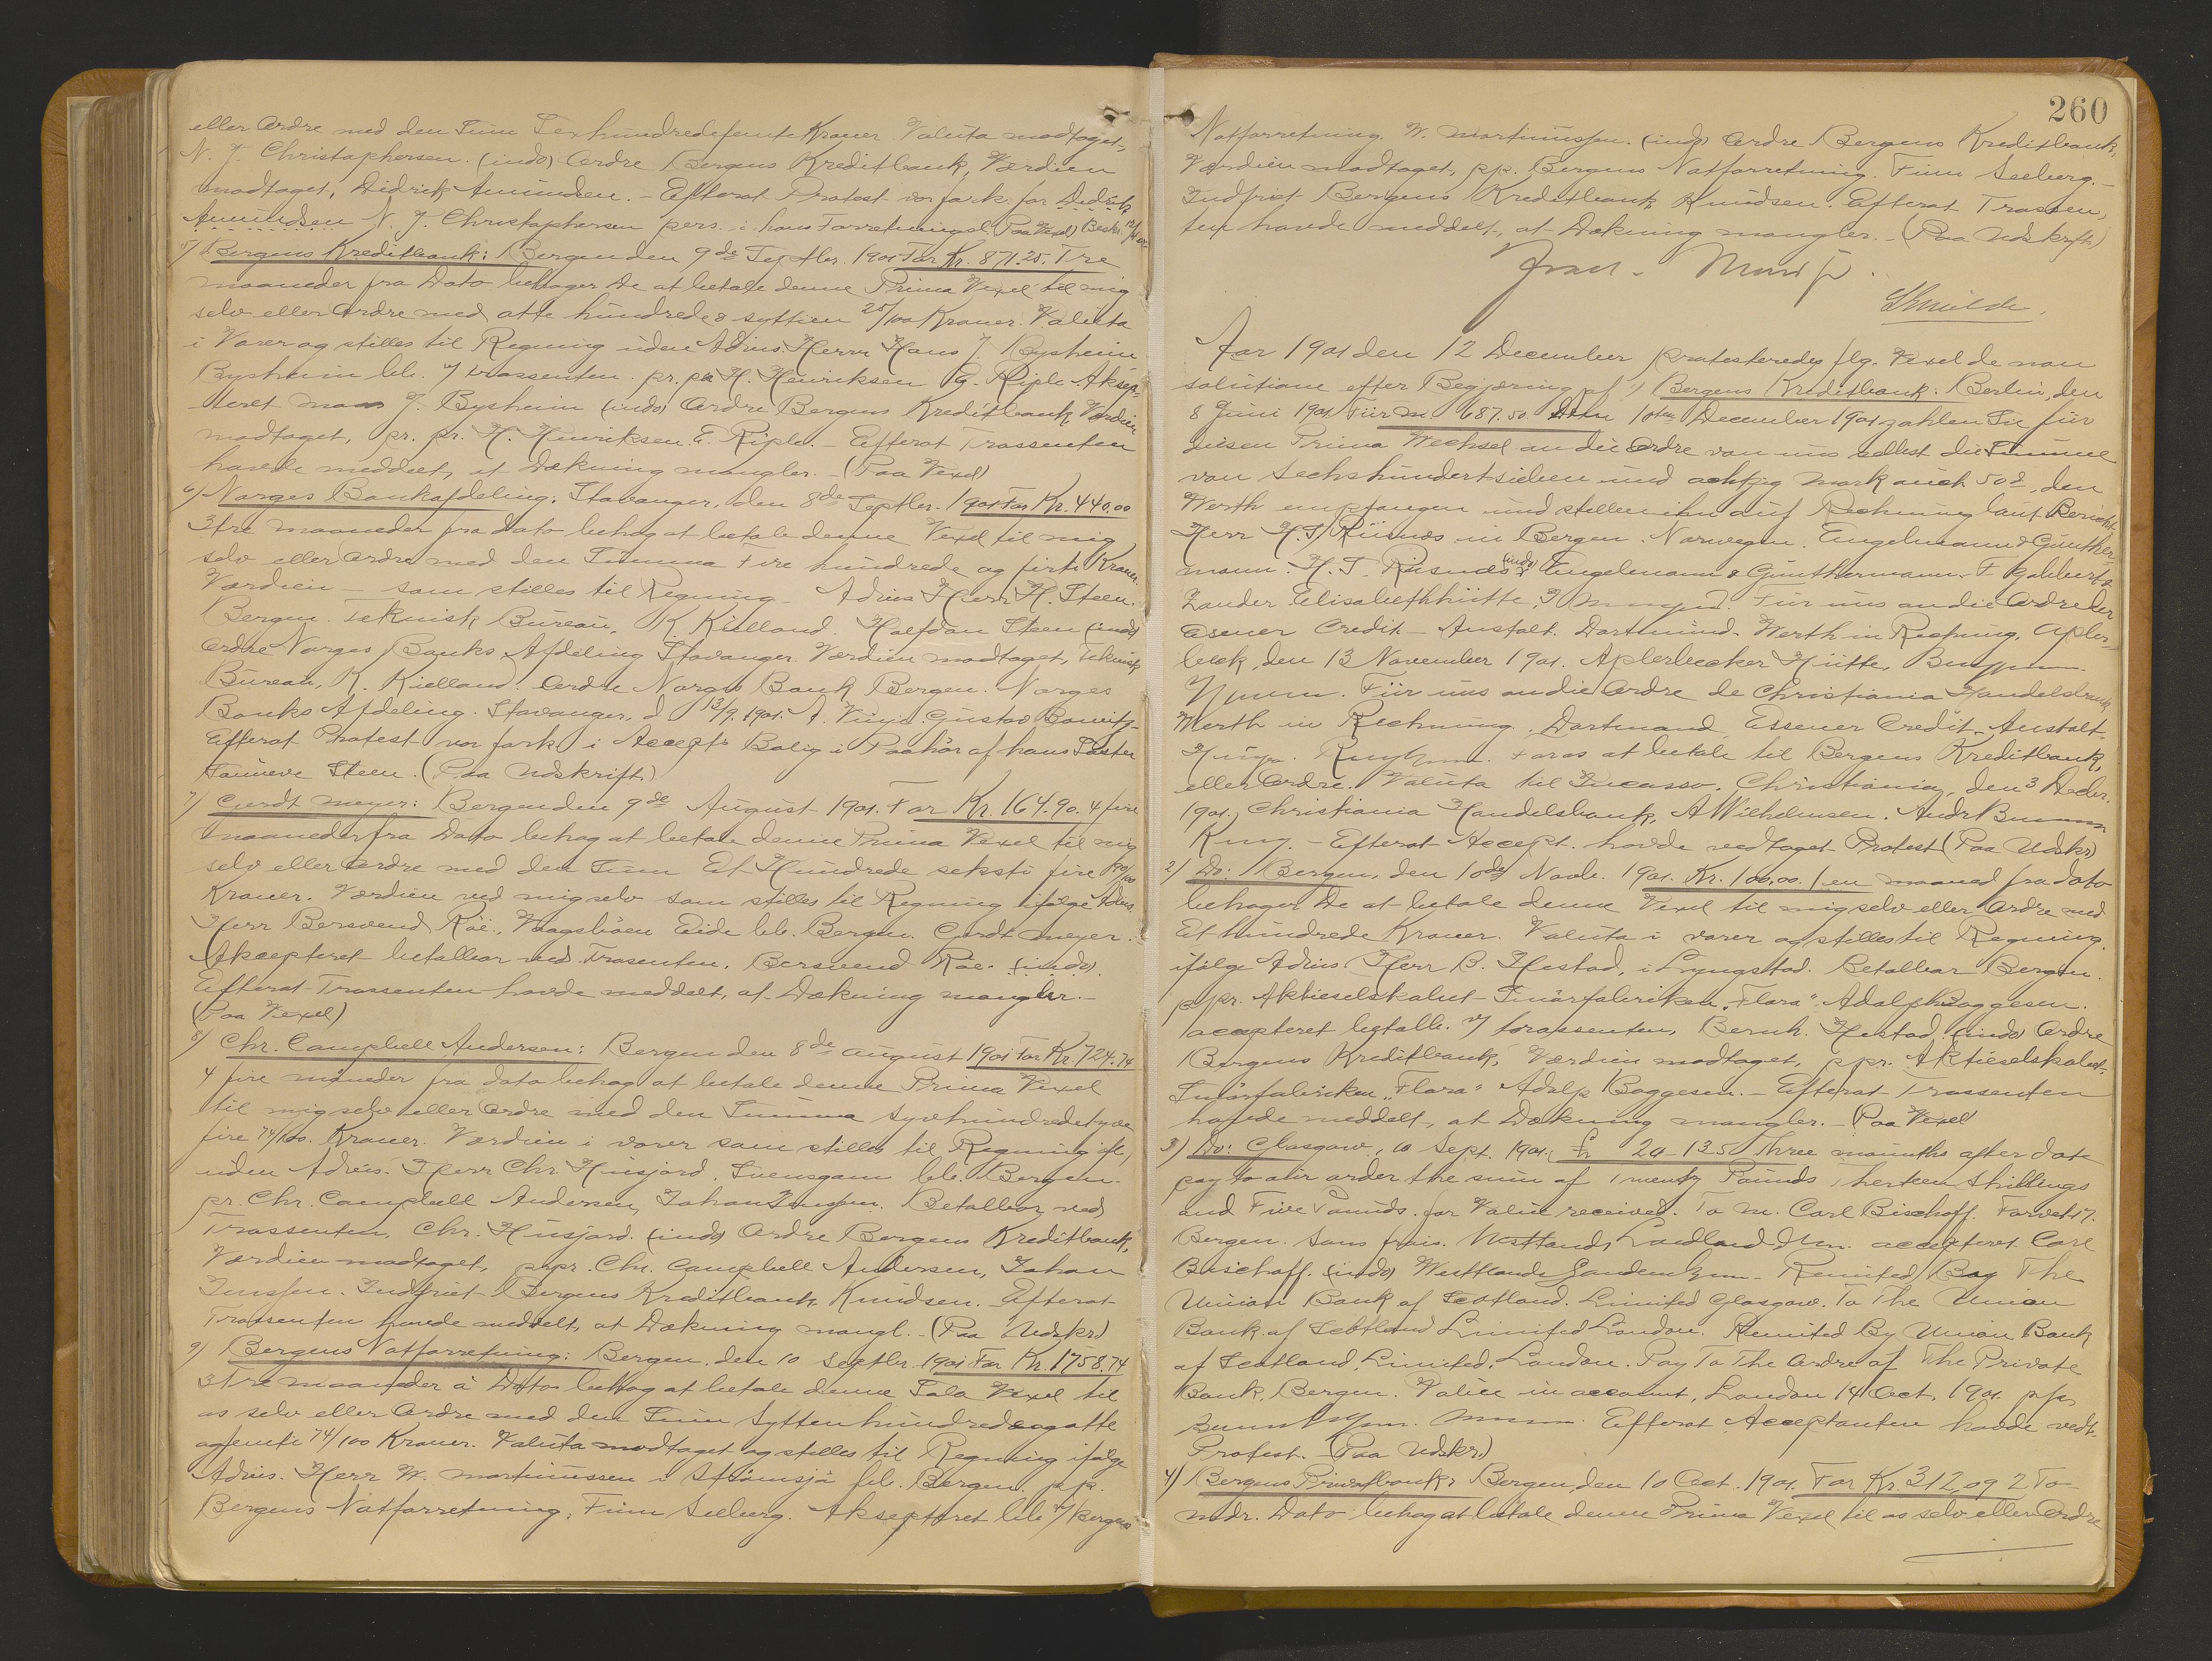 eller Ordre med den Sum Sexhundredefemti Kroner. Valuta modtaget,
N. J. Christophersen. (indo) Ordre Bergens Kreditbank, Værdien
modtaget, Didrik Amundsen. - Efterat Protest var fark. for Didrik
Amundsen N. J. Christophersen pers. i hans Forretningsl. (Paa Vexel)
5) Bergens Kreditbank: Bergen den 9de Septbr. 1901 For Kr. 871.25. Tre
maaneder fra Dato behager De at betale denne Prima Vexel til mig
selv eller Ordre med otte hundrede & syttien 25/100 Kroner. Valuta
i Varer og stilles til Regning uden Advis. Herrn Hans J. Bysheim
Bysheim blb. v/ trassenten. pr. pa H. Henriksen G. Riple Aksep-
teret Hans J. Bysheim (indo) Ordre Bergens Kreditbank Værdien
modtaget, pr. pr. H. Henriksen G. Riple. - Efterat Trassenten
havde meddelt, at Dækning mangler. - (Paa Vexel)
6) Norges Bankafdeling: Stavanger, den 8de Septbr. 1901 For Kr. 440.00
3 tre maaneder fra dato behag at betale denne Vexel til mig
selv eller Ordre med den Summa Fire hundrede og firti Kroner.
Værdien - som stilles til Regning - Advis Herr H. Steen.
Bergen. Teknisk Bureau, K. Kielland. Halfdan Steen (indo)
Ordre Norges Banks Afdeling Stavanger. Værdien modtaget, Teknisk
Bureau, K. Kielland. Ordre Norges Bank Bergen. Norges
Banks Afdeling. Stavanger, d 13/9. 1901. A. Gustav
Efterat Protest var fark. i Accept. Bolig i Paahör af hans Söster
Steen. (Paa Udskrift.)
7) Gerdt Meyer: Bergen den 9de August 1901. For Kr. 164.90. 4 fire
maaneder fra Dato behag at betale denne Prima Vexel til mig
selv eller Ordre med den Sum Et Hundrede seksti fire 90/100
Kroner. Værdien ved mig selv som stilles til Regning ifølge Advis.
Herr Bersvend Röe, Vaagsböen Eide blb. Bergen. Gerdt Meyer.
Akcepteret betalbar ved Trasenten. Bersvend Röe. (indo).
Efterat Trassenten havde meddelt, at Dækning mangler. -
(Paa Vexel)
8) Chr. Campbell Andersen: Bergen den 8de august 1901 For Kr. 724.74
4 fire måneder fra dato behag at betale denne Prima Vexel
til mig selv eller Ordre med den Summa syvhundredetyve
fire 74/100. Kroner. Værdien i varer som stilles til Regning ifl,
uden Advis. Herr Chr. Husjord. Svensgam blb. Bergen.
pr. Chr. Campbell Andersen, Johan Jenssen. Betalbar ved
Trassenten, Chr. Husjord. (indo) Ordre Bergens Kreditbank,
Værdien modtaget, ppr. Chr. Campbell Andersen, Johan
Jenssen. Indfriet Bergens Kreditbank Knudsen. Efterat
Trassenten havde meddelt, at Dækning mangl. - (Paa Udskr.)
9) Bergens Notforretning: Bergen, den 10 Septbr. 1901 For Kr. 1758.74
3 Tre maaneder à Dato behag at betale denne Sola Vexel til
os selv eller Ordre med den Sum Sytten hundredeogotte
ogfemti 74/100 Kroner. Valuta modtaget og stilles til Regning ifölge
Advis. Herr W. Martinussen i blb. Bergen. pp.
Bergens Notforretning, Finn Seeberg. Akcepteret blb v/ Bergens
260
Notforretning. W. Martinussen. (indo) Ordre Bergens Kreditbank,
Værdien modtaget, pp. Bergens Notforretning. Finn Seeberg. -
Indfriet Bergens Kreditbank Knudsen. Efterat Trassen-
ten havde meddelt, at Dækning mangler. - (Paa Udskrift.)
Aar 1901 den 12 December protesteredes flg. Vexel de non
solutione efter Begjæring af 1) Bergens Kreditbank: Berlin, den
8 Juni 1901 Für M. 687.50. Am 10ten December 1901 zahlen Sie für
diesen Prima Wechsel an die Ordre von uns selbst die Summe
von Sechshundertsieben und achtzig Mark auch 50 , den
Werth empfangen und stellen ihn auf Rechnung laut Bericht.
Herr H. J. in Bergen. Norwegen. Engelmann & Günther-
mann. H. J. (indo) Engelmann & Günthermann.
Zander Elisabethhütte. Für uns an die Ordre der
Essener Credit-Anstalt. Dortmund. Werth in Rechnung, Apler-
beck, den 13 November 1901. Aplerbecker Hütte,
Für uns an die Ordre de Christiania Handelsbank
Werth in Rechnung. Dortmund, Essener Credit-Anstalt.
For os at betale til Bergens Kreditbank,
eller Ordre. Valuta til Incasso. Christiania, den 3 Decbr.
1901, Christiania Handelsbank, A Wilhelmsen. Andr
- Efterat Accept. havde vedtaget Protest (Paa Udskr.)
2) Do: Bergen, den 10de Novb. 1901. Kr. 100.00. 1 en maaned fra dato
behager De at betale denne Vexel til mig selv eller Ordre med
Et hundrede Kroner. Valuta i varer og stilles til Regning.
ifölge Advis. Herr B. Hestad, i Lyngstad. Betalbar Bergen.
ppr. Aktieselskabet Smörfabriken "Flora". Adolph Boggesen.
accepteret betalb. v/ trassenten, Bernh. Hestad. (indo) Ordre
Bergens Kreditbank, Værdien modtaget, ppr. Aktieselskabet
Smörfabriken "Flora" Adolp Boggesen. - Efterat Trassenten
havde meddelt, at Dækning mangler. - (Paa Vexel
3) Do: Glasgow, 10 Sept. 1901. £ 20-13.5 Three mounths after date
pay to our order the sum of Twenty Pounds Therteen Shillings
and Five Pounds. for Value received. To M. Carl Bischoff. Torvet 17.
Bergen. Sans frais. accepteret Carl
Bischoff. (indo) Remited Bay The
Union Bank of Scotland. Limited Glasgow. To The Union
Bank of Scotland Limited London. Remited By Union Bank
of Scotland, Limited. London. Pay To The Ordre of The Private
Bank, Bergen. Value in account, London 14 Oct. 1901. pp
Efterat Acceptanten havde vedt.
Protest. - (Paa Udskr.)
4) Bergens Privatbank: Bergen, den 10 Oct. 1901. For Kr. 312,09 2 To
mdr. Dato behag at betale denne Prima Vexel til os selv eller Ordre